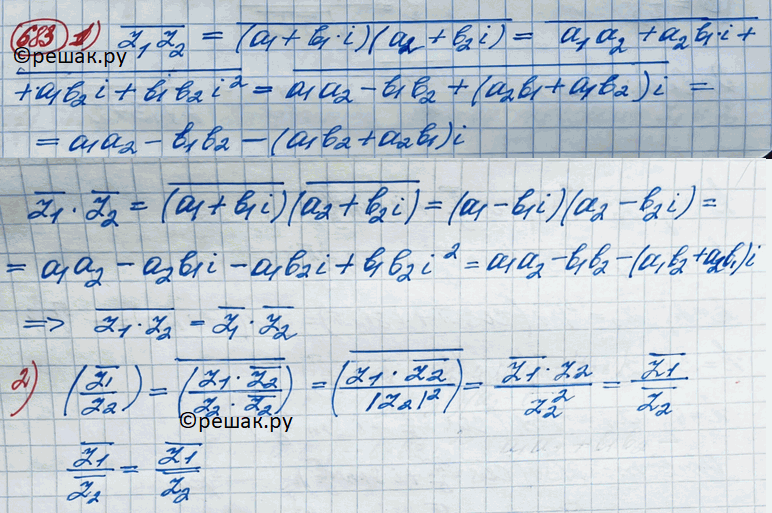 683 1) \overline{z₁ z₂} = \overline{(a₁ + b₁·i)(a₂ + b₂i)} = \overline{a₁a₂ + a₂b₁·i +
©решак.ру
+ a₁b₂i + b₁b₂i²} = \overline{a₁a₂ - b₁b₂ + (a₂b₁ + a₁b₂)i} =
= a₁a₂ - b₁b₂ - (a₁b₂ + a₂b₁)i
\overline{z₁} · \overline{z₂} = (\overline{a₁ + b₁i})(\overline{a₂ + b₂i}) = (a₁ - b₁i)(a₂ - b₂i) =
= a₁a₂ - a₂b₁i - a₁b₂i + b₁b₂i² = a₁a₂ - b₁b₂ - (a₁b₂ + a₂b₁)i
=> \overline{z₁·z₂} = \overline{z₁} · \overline{z₂}
2) (\overline{z₁}/z₂) = \overline{(z₁·\overline{z₂}/z₂·\overline{z₂})} = \overline{(z₁·\overline{z₂}/|z₂|²)} = \overline{z₁}·z₂/z₂² = \overline{z₁}/\overline{z₂}
©решак.ру
\overline{z₁}/\overline{z₂} = \overline{z₁}/\overline{z₂}